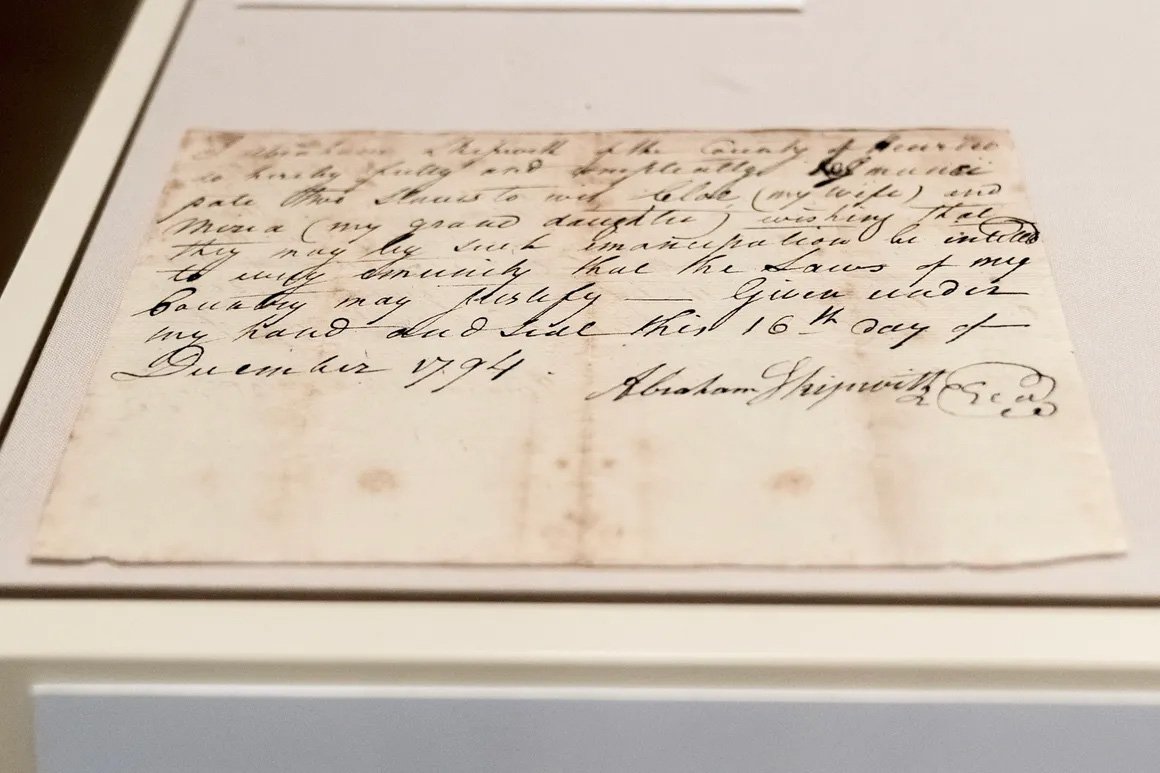 I Abraham Skipwith of the County of Henrico
do hereby fully and compleatly Emanci
pate two Slaves to wit Cloe (my wife) and
Miria (my grand daughter) wishing that
they may by such emancipation be intitled
to every emunity that the Laws of my
Country may justify — Given under
my hand and seal this 16th day of
December 1794.
Abraham Skipwith